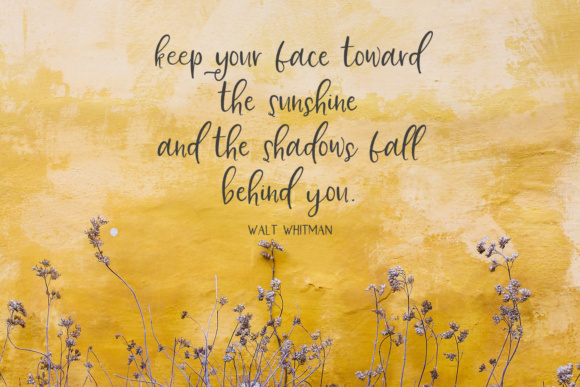 keep your face toward
the sunshine
and the shadows fall
behind you.
WALT WHITMAN